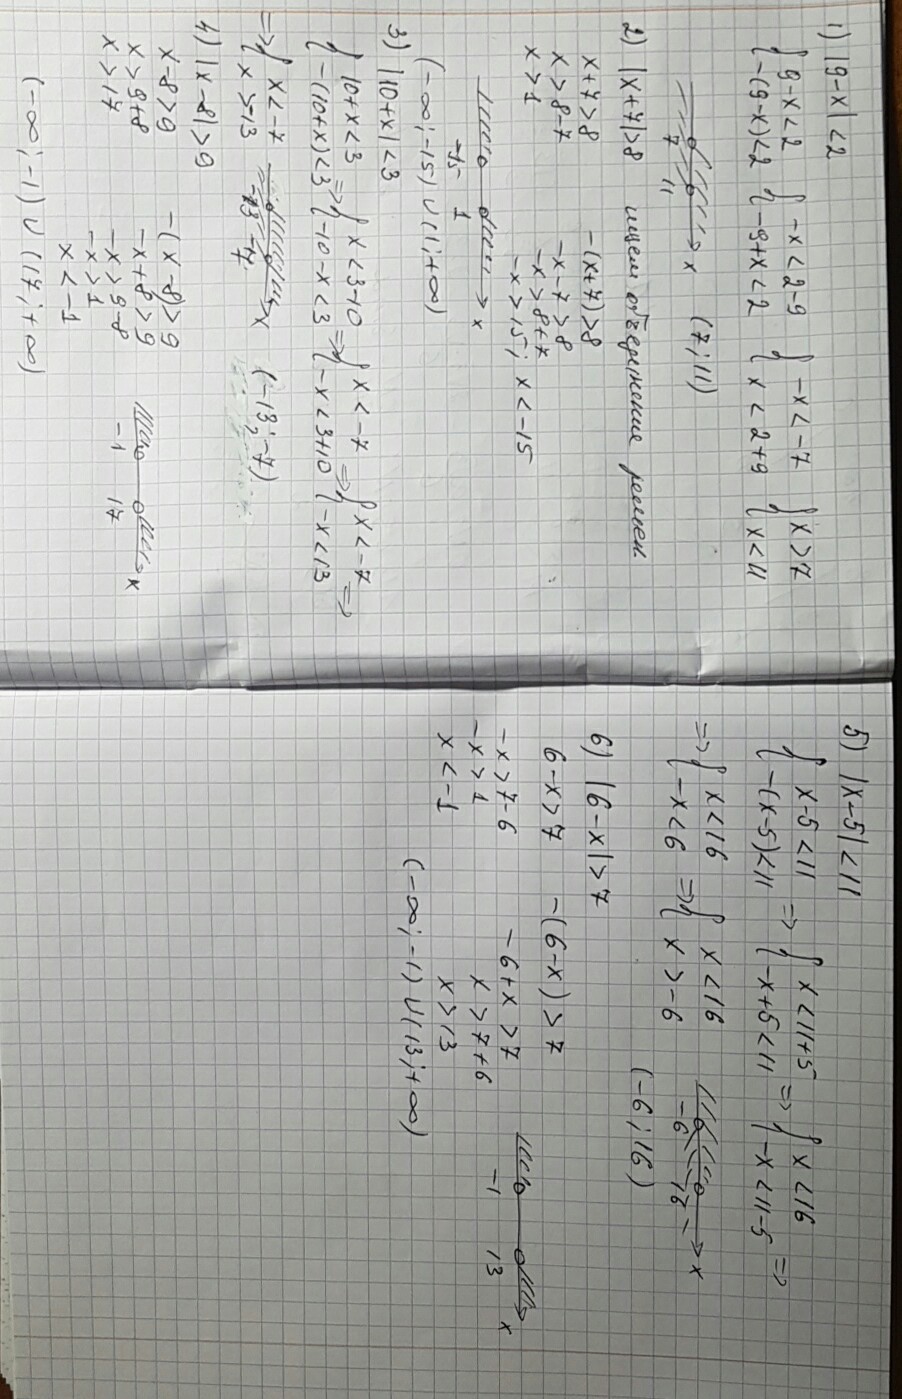 1) |9-x|<2
{ 9-x<2 { -x<2-9 { -x<-7 { x>7
{ -(9-x)<2 { -9+x<2 { x<2+9 { x<11
7 11 x (7; 11)
2) |x+7|>8 ищем объединение решен.
x+7>8 -(x+7)>8
x>8-7 -x-7>8
x>1 -x>8+7
-x>15; x<-15
-15 1 x
(-∞; -15) ∪ (1; +∞)
3) |10+x|<3
{ 10+x<3 => { x<3-10 => { x<-7 => { x<-7 =>
{ -(10+x)<3 { -10-x<3 { -x<3+10 { -x<13
=> { x<-7
{ x>-13 -13 -7 x (-13; -7)
4) |x-8|>9
x-8>9 -(x-8)>9
x>9+8 -x+8>9
x>17 -x>9-8
-x>1
x<-1
-1 17 x
(-∞; -1) ∪ (17; +∞)
5) |x-5|<11
{ x-5<11 => { x<11+5 => { x<16
{ -(x-5)<11 { -x+5<11 { -x<11-5 =>
=> { x<16 { x<16
{ -x<6 => { x>-6 -6 16 x
(-6; 16)
6) |6-x|>7
6-x>7 -(6-x)>7
-x>7-6 -6+x>7
-x>1 x>7+6
x<-1 x>13
-1 13 x
(-∞; -1) ∪ (13; +∞)